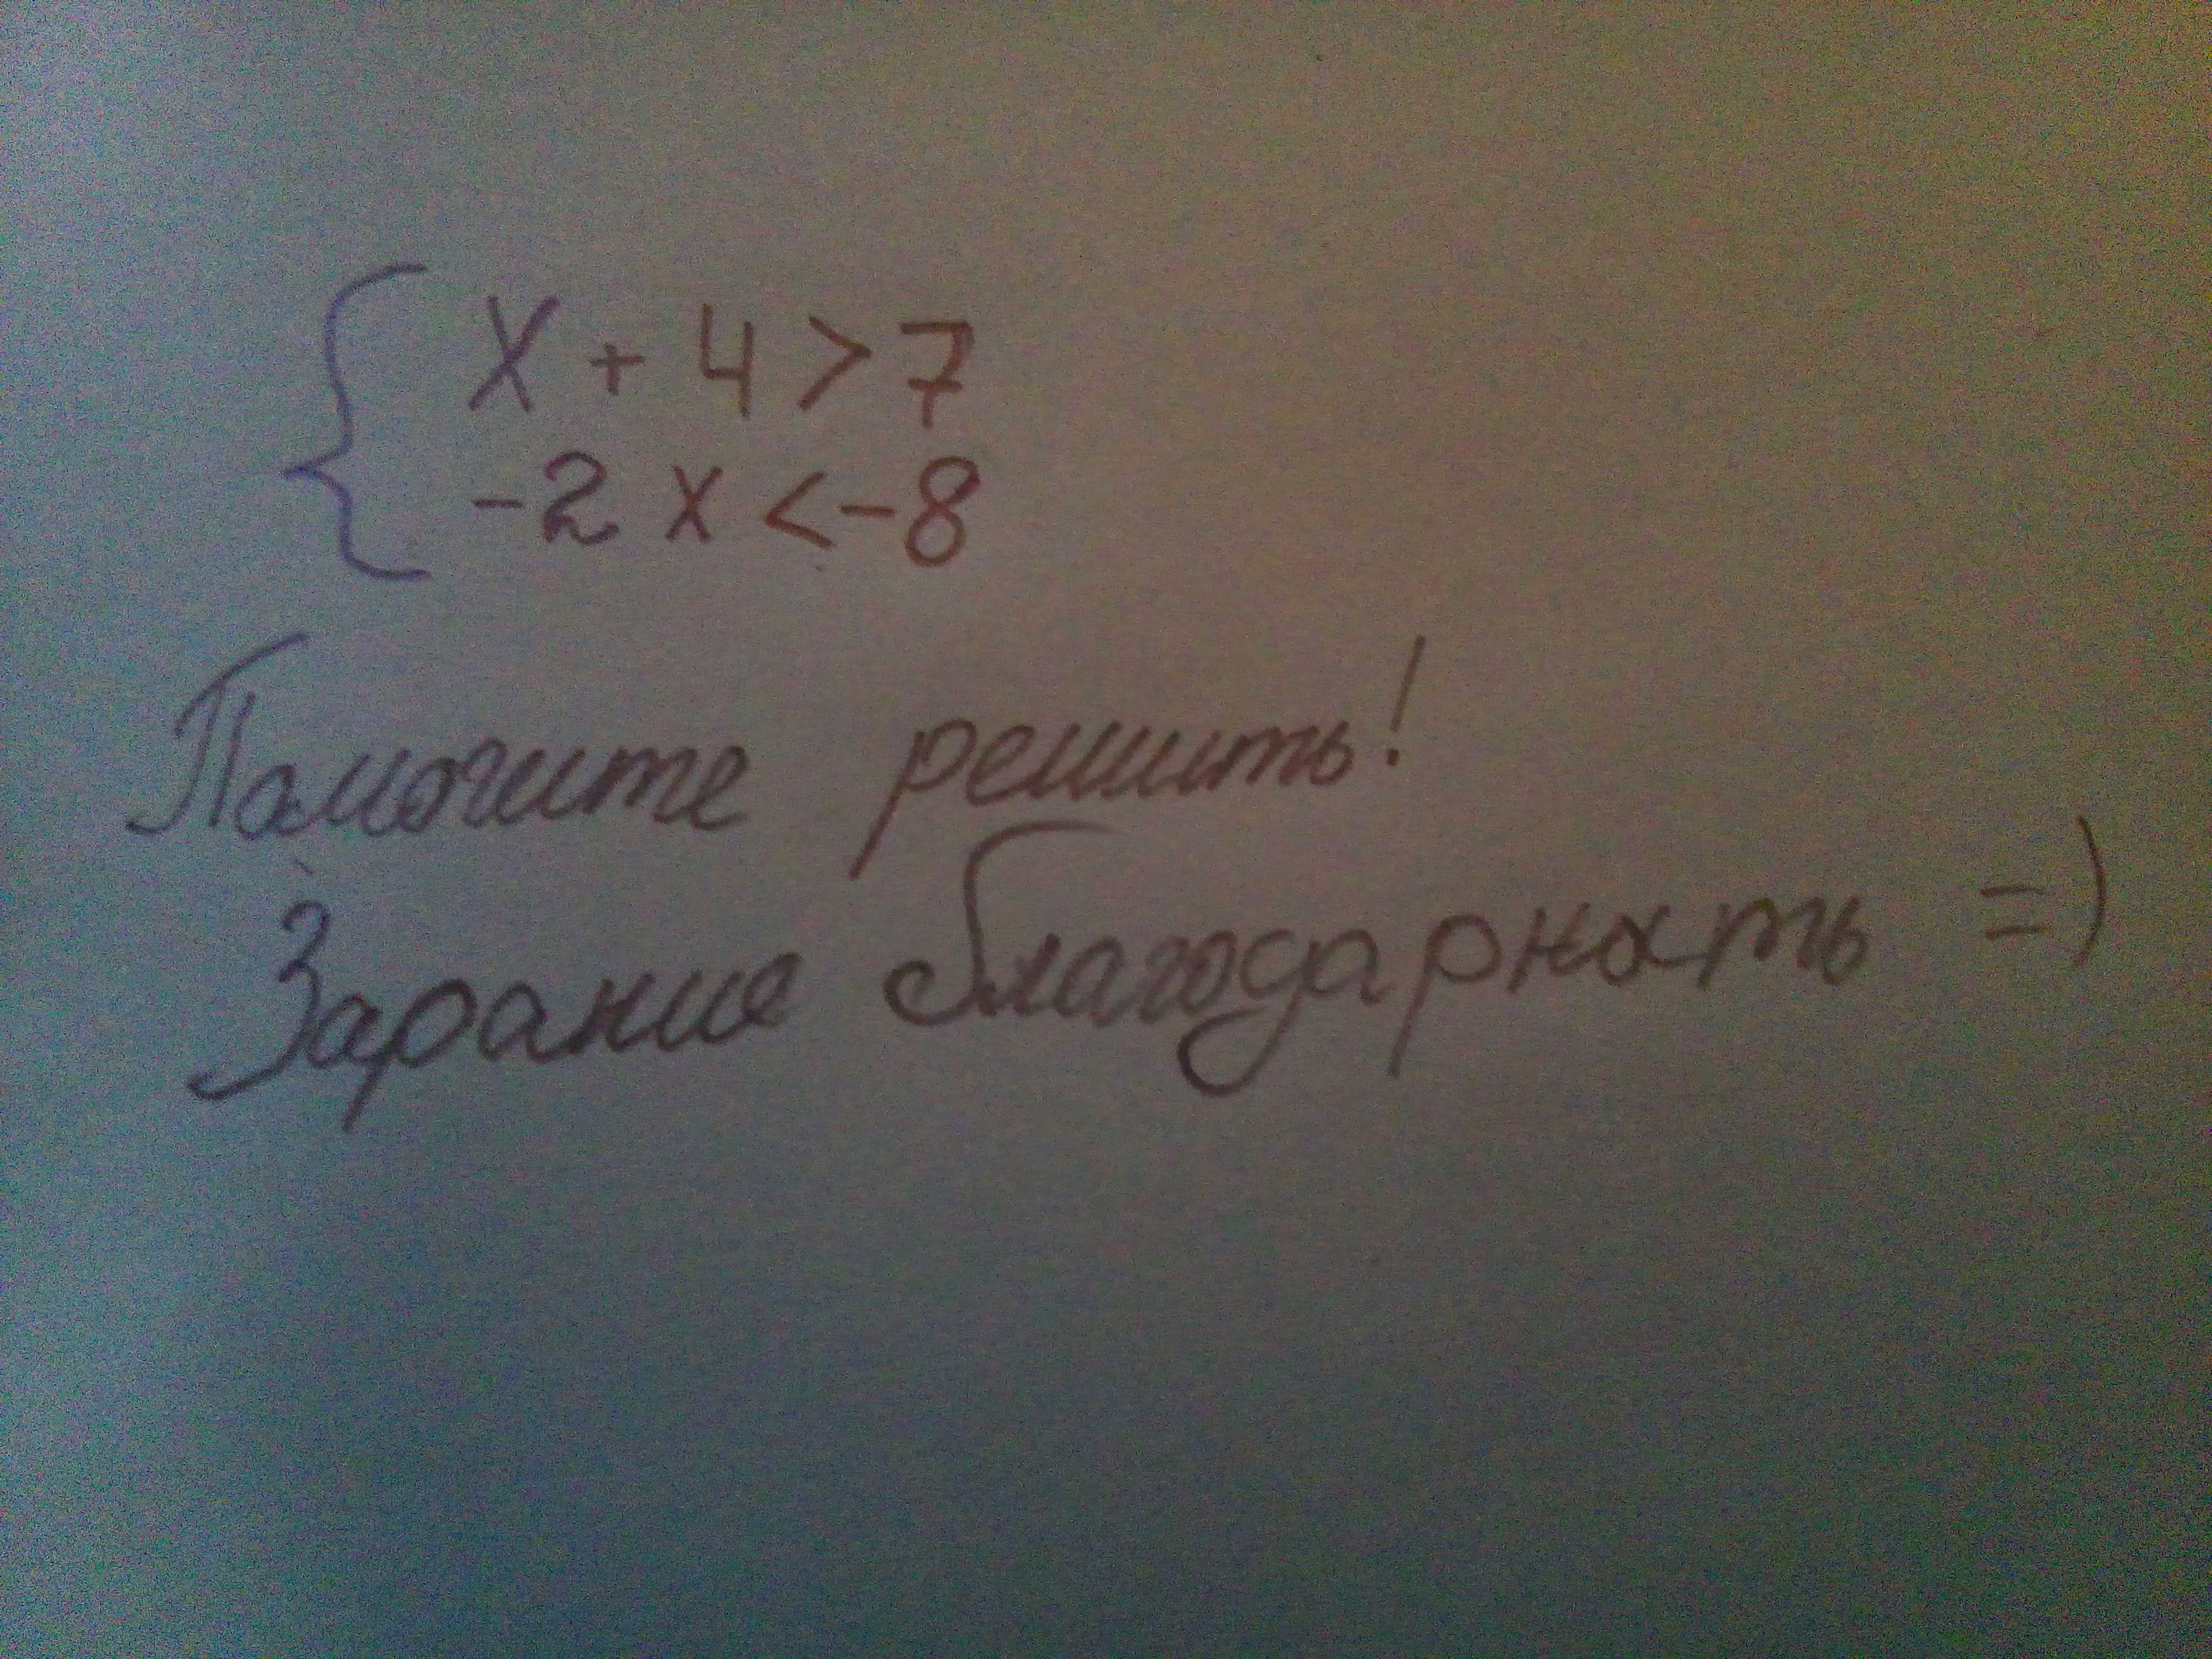 { x + 4 > 7
-2 x < -8
Помогите решить!
Зарание благодарность =)